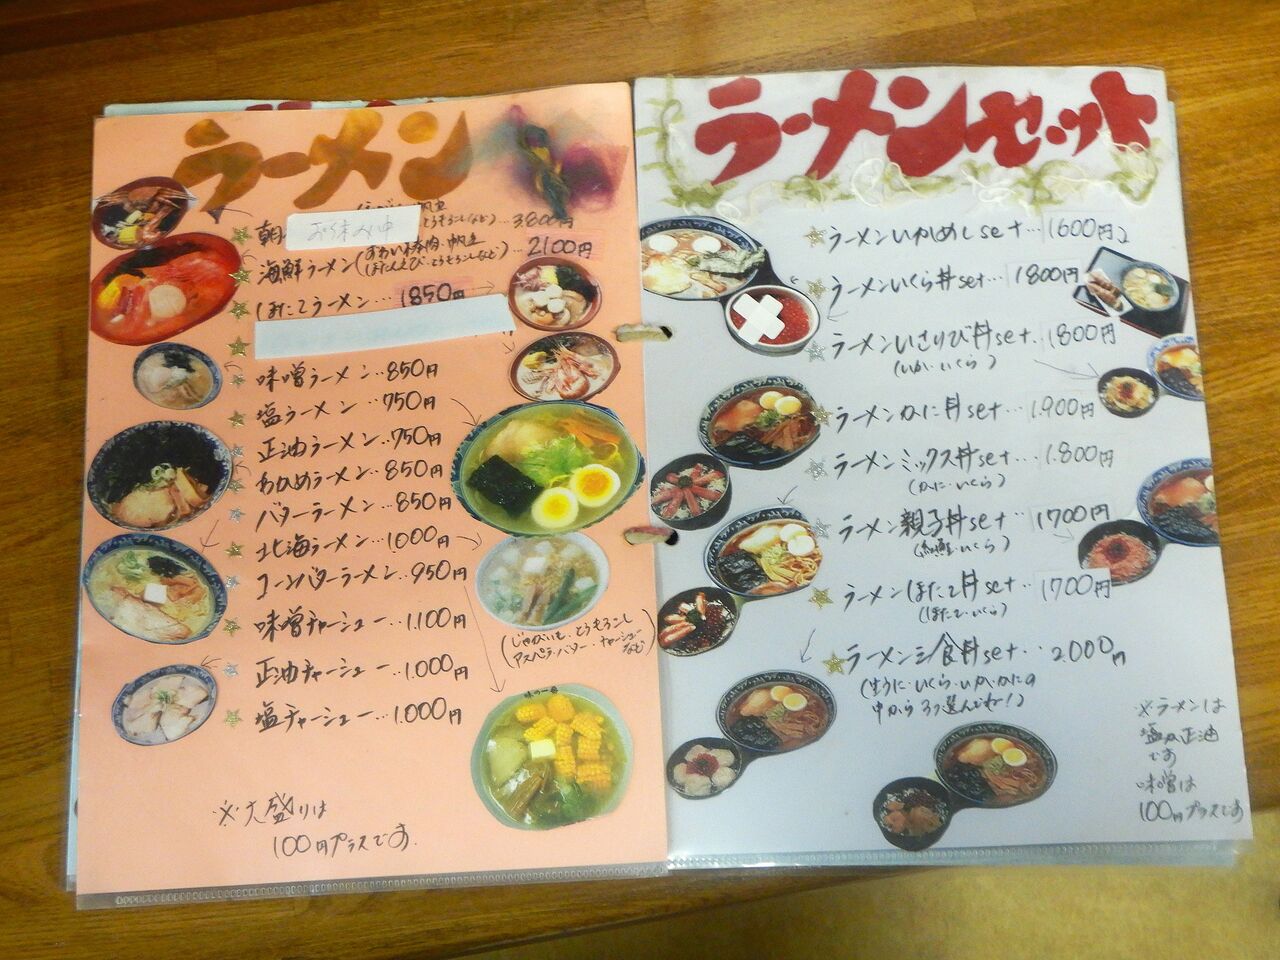 ラーメン
朝 お休み中 とうもろこしなど)…3.800円
海鮮ラーメン( ・帆立
ぼたんえび・とうもろこしなど)…2100円
ほたてラーメン…1850円
味噌ラーメン…850円
塩ラーメン…750円
正油ラーメン…750円
わかめラーメン…850円
バターラーメン…850円
北海ラーメン…1.000円
コーンバターラーメン…950円
味噌チャーシュー…1.100円
正油チャーシュー…1.000円
塩チャーシュー…1.000円
(じゃがいも・とうもろこし
アスパラ・バター・チャーシュー
など)
※大盛りは
100円プラスです.
ラーメンセット
ラーメンいかめしset…1600円
ラーメンいくら丼set…1800円
ラーメンいさりび丼set…1800円
(いか・いくら)
ラーメンかに丼set…1.900円
ラーメンミックス丼set…1.800円
(かに・いくら)
ラーメン親子丼set…1700円
(鮭・いくら)
ラーメンほたて丼set…1700円
(ほたて・いくら)
ラーメン三食丼set…2.000円
(生うに・いくら・いか・かにの
中から3つ選んでね!)
※ラーメンは
塩か正油
です
味噌は
100円プラスです